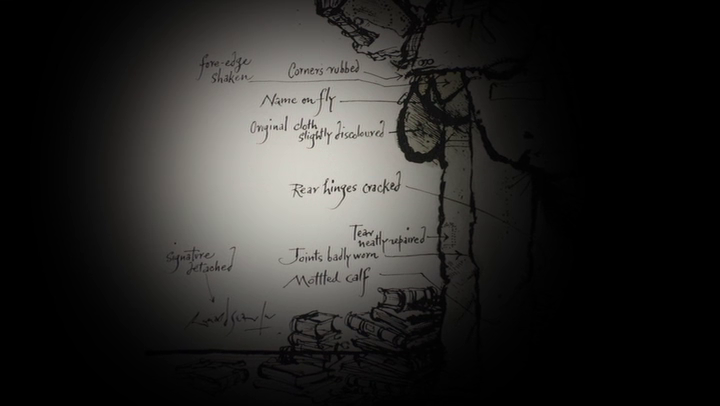 fore-edge
shaken
Corners rubbed
Name on fly
Original cloth
slightly discoloured
Rear hinges cracked
Tear
neatly repaired
Joints badly worn
Mottled calf
signature
detached